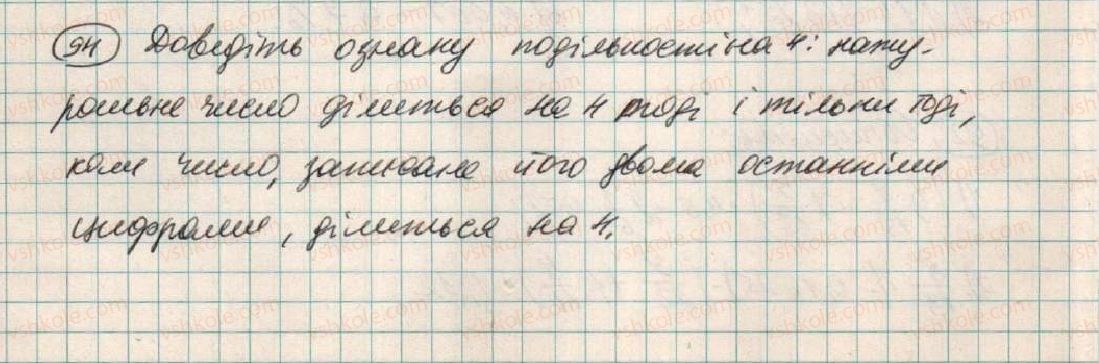 54 Доведіть ознаку подільності на 4: нату-
ральне число ділиться на 4 тоді і тільки тоді,
коли число, записане його двома останніми
цифрами, ділиться на 4.